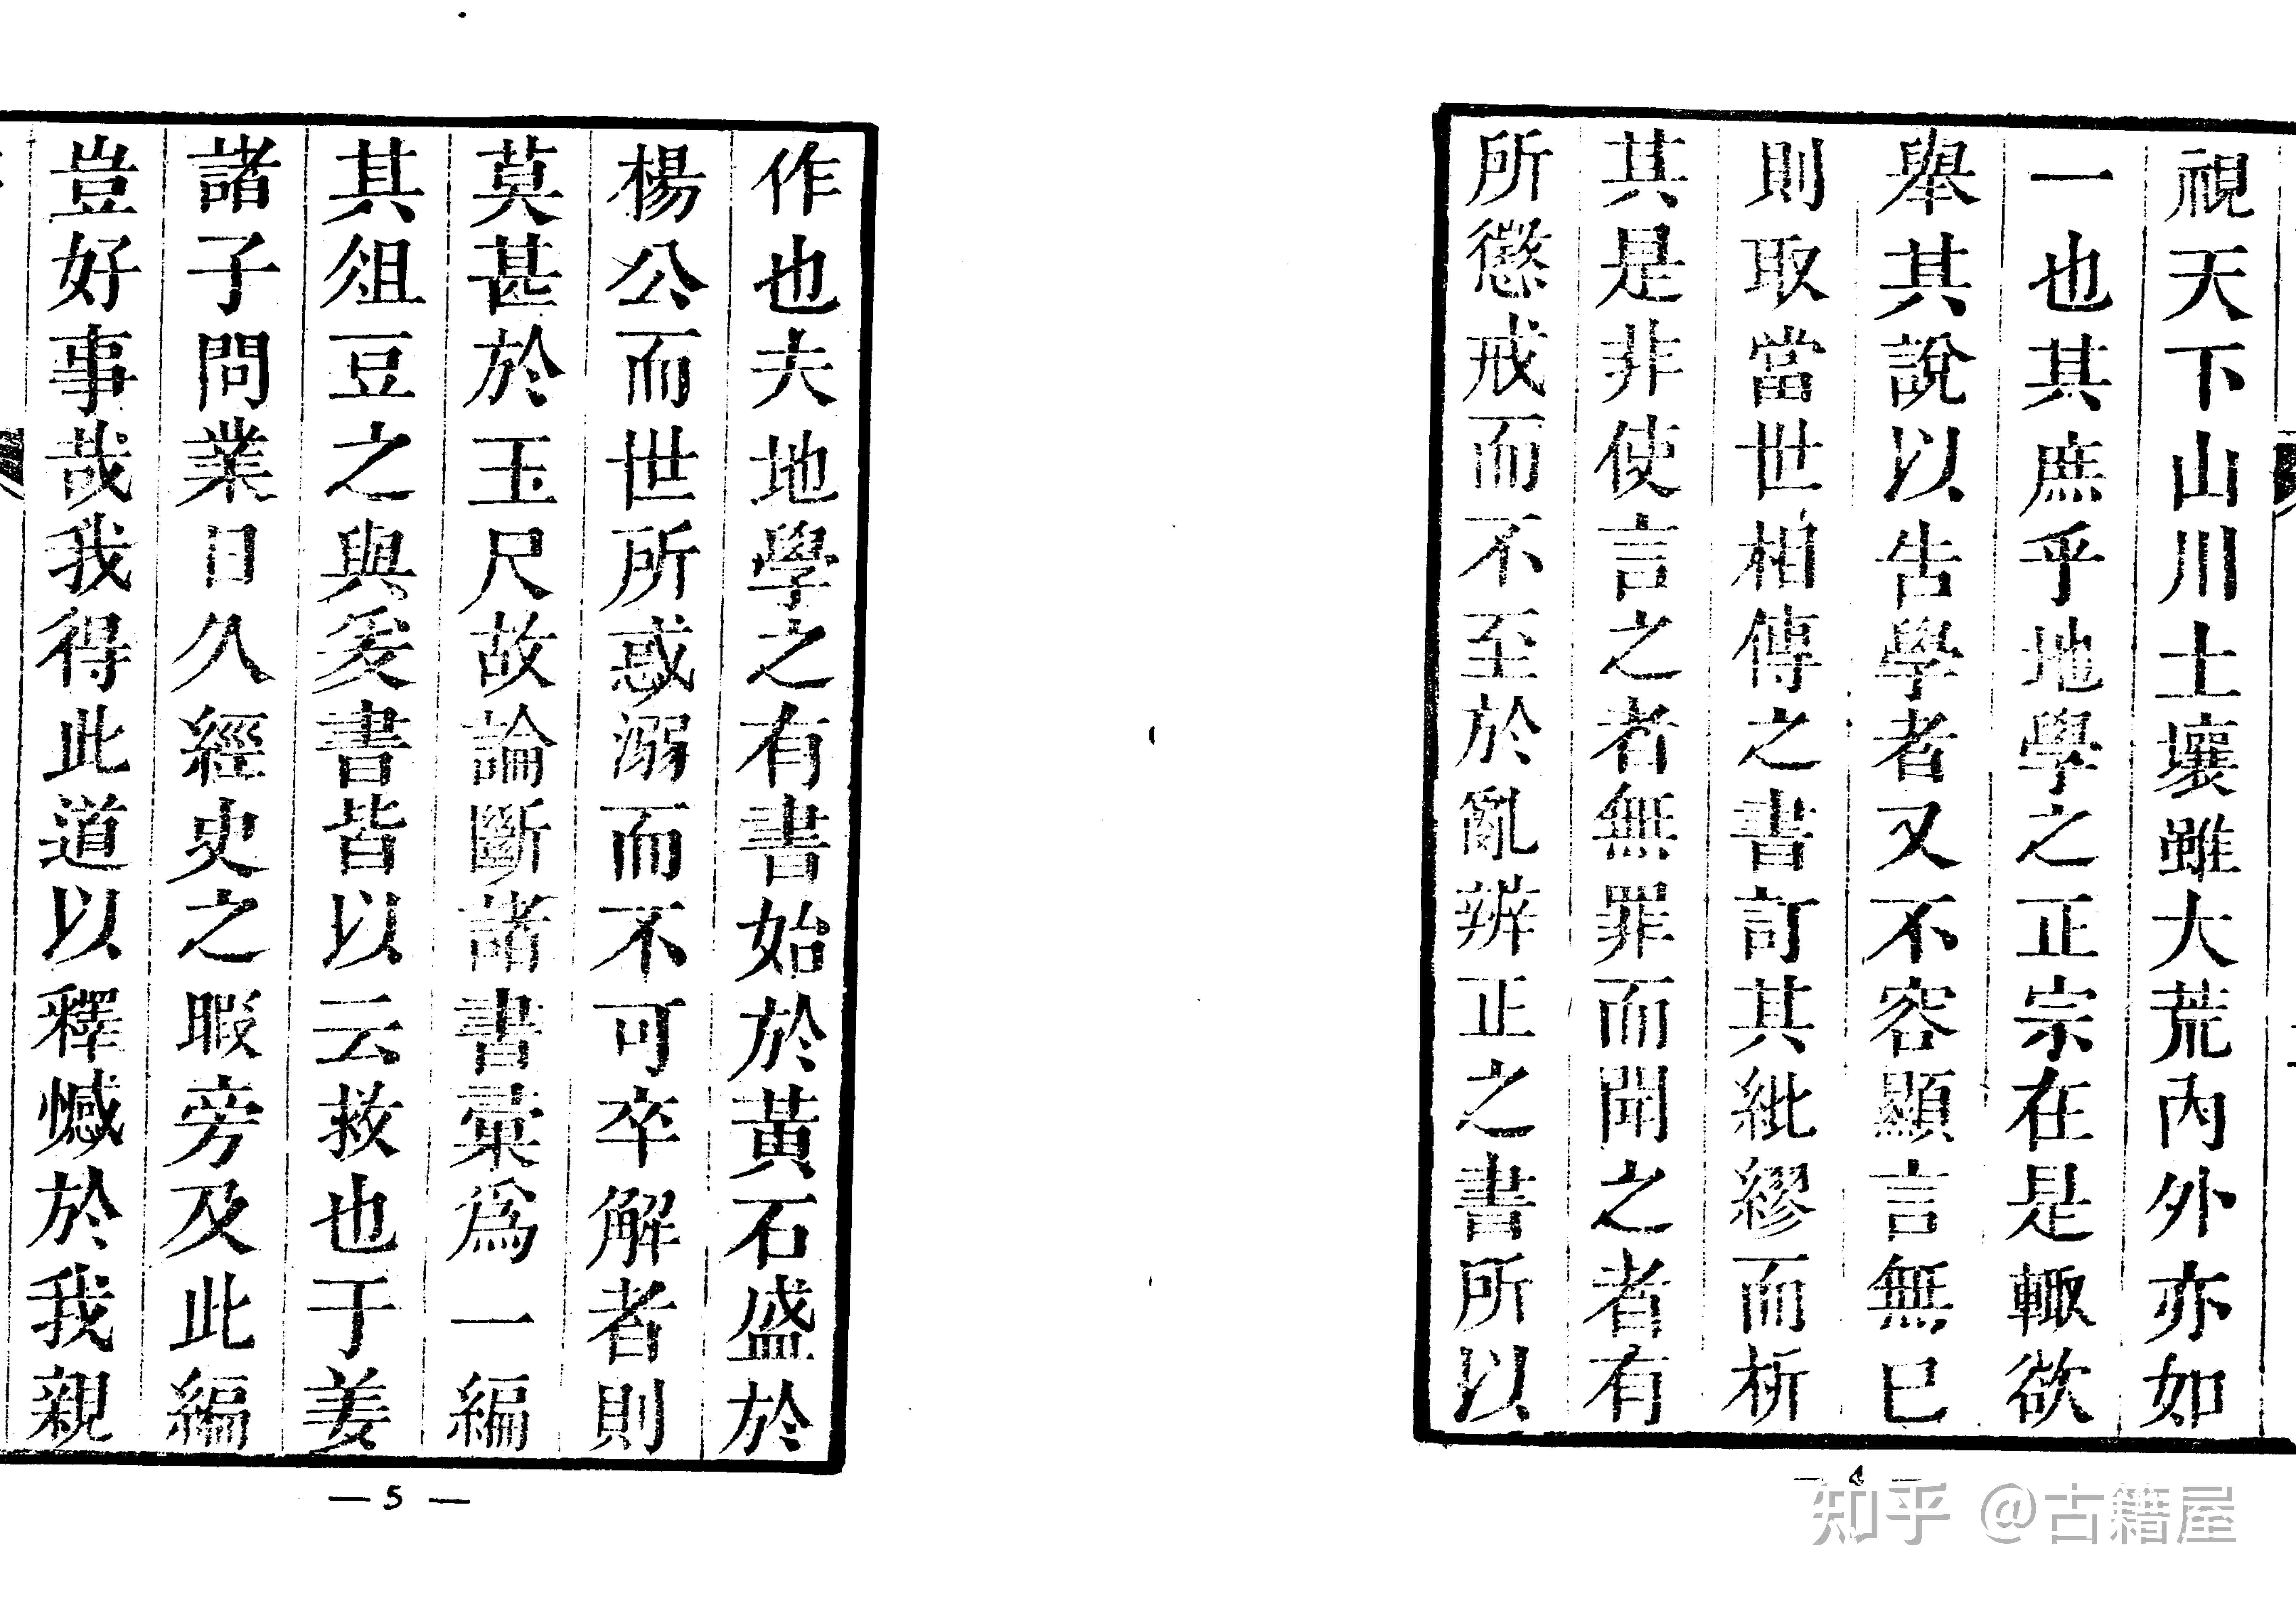 視天下山川土壤雖大荒內外亦如
一也其庶乎地學之正宗在是輙欲
舉其說以告學者又不容顯言無已
則取當世相傳之書訂其紕繆而析
其是非使言之者無罪而聞之者有
所懲戒而不至於亂辨正之書所以
— 4 —
作也夫地學之有書始於黃石盛於
楊公而世所惑溺而不可卒解者則
莫甚於玉尺故論斷諸書彙爲一編
其俎豆之與爰書皆以云救也于姜
諸子問業日久經史之暇旁及此編
豈好事哉我得此道以釋憾於我親
— 5 —
知乎 @古籍屋